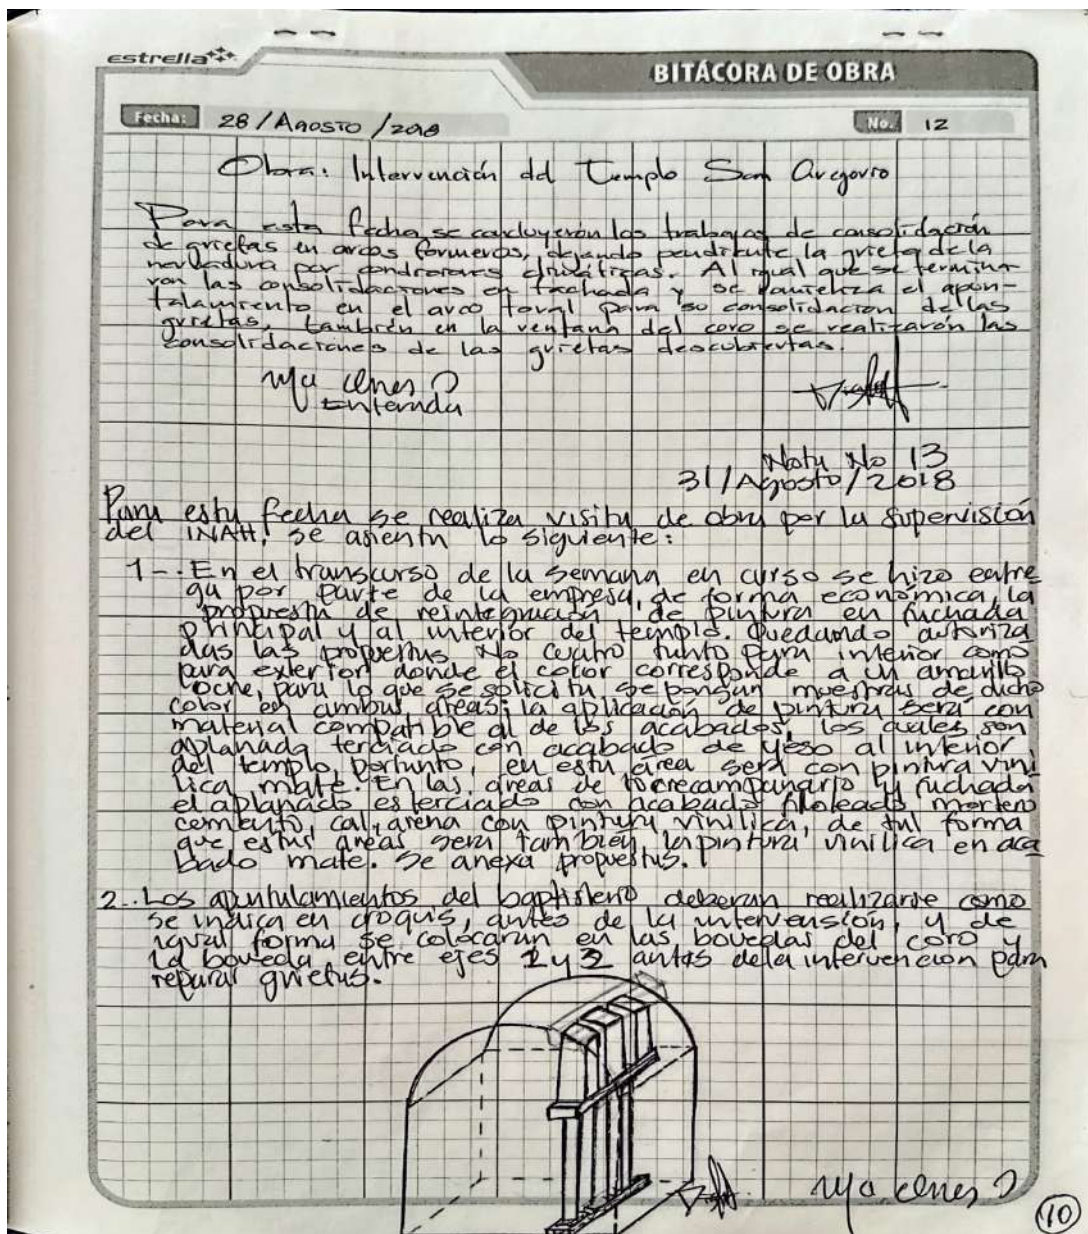 estrella
BITÁCORA DE OBRA
Fecha: 28/AGOSTO/2018 No. 12
Obra: Intervención del Templo San Gregorio
Para esta fecha se concluyerón los trabajos de consolidación
de grietas en arcos formeros, dejando pendiente la grieta de la
nervadura por condiciones climáticas. Al igual que se termina-
ron las consolidaciones en fachada y se el apun-
talamiento en el arco toral para su consolidacion de las
grietas, también en la ventana del coro se realizarón las
consolidaciones de las grietas descubiertas.
Enterada
Nota No 13
31/Agosto/2018
Para esta fecha se realiza visita de obra por la supervisión
del INAH, se asienta lo siguiente:
1-. En el transcurso de la semana en curso se hizo entre
ga por parte de la empresa, de forma económica, la
propuesta de reintegración de pintura en fachada
principal y al interior del templo. Quedando autoriza
das las propuestas No cuatro tanto para interior como
para exterior donde el color corresponde a un amarillo
ocre, para lo que se solicita, se pongan muestras de dicho
color en ambas areas; la aplicación de pintura será con
material compatible al de los acabados, los cuales son
aplanada terciado con acabado de yeso al interior
del templo, portanto, en esta área será con pintura vini
lica mate. En las áreas de torrecampanario y fachada
el aplanado es terciado con acabado floteado mortero
cemento, cal, arena con pintura vinilica, de tal forma
que estas areas sera tambien la pintura vinilica en aca
bado mate. Se anexa propuestas.
2-. Los apuntalamientos del baptisterio deberan realizarse como
se indica en croquis, antes de la intervensión, y de
igual forma se colocaran en las bovedas del coro y
la boveda entre ejes 1 y 2 antes dela intervención para
reparar grietas.
10